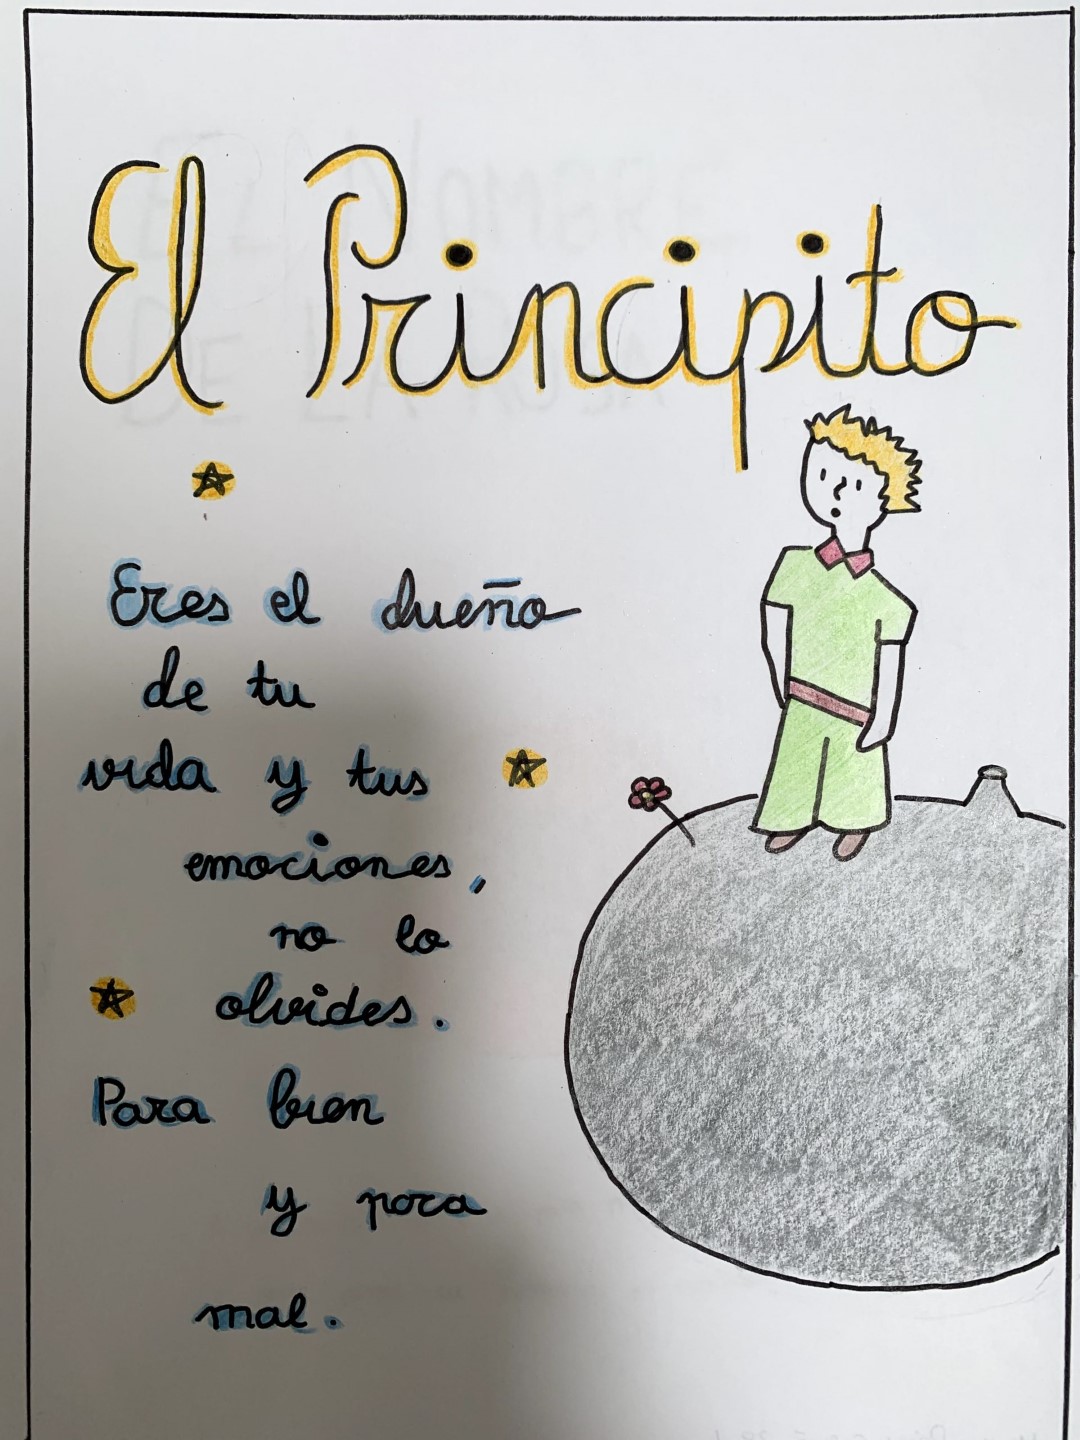 El Principito
Eres el dueño
de tu
vida y tus
emociones,
no lo
olvides.
Para bien
y para
mal.